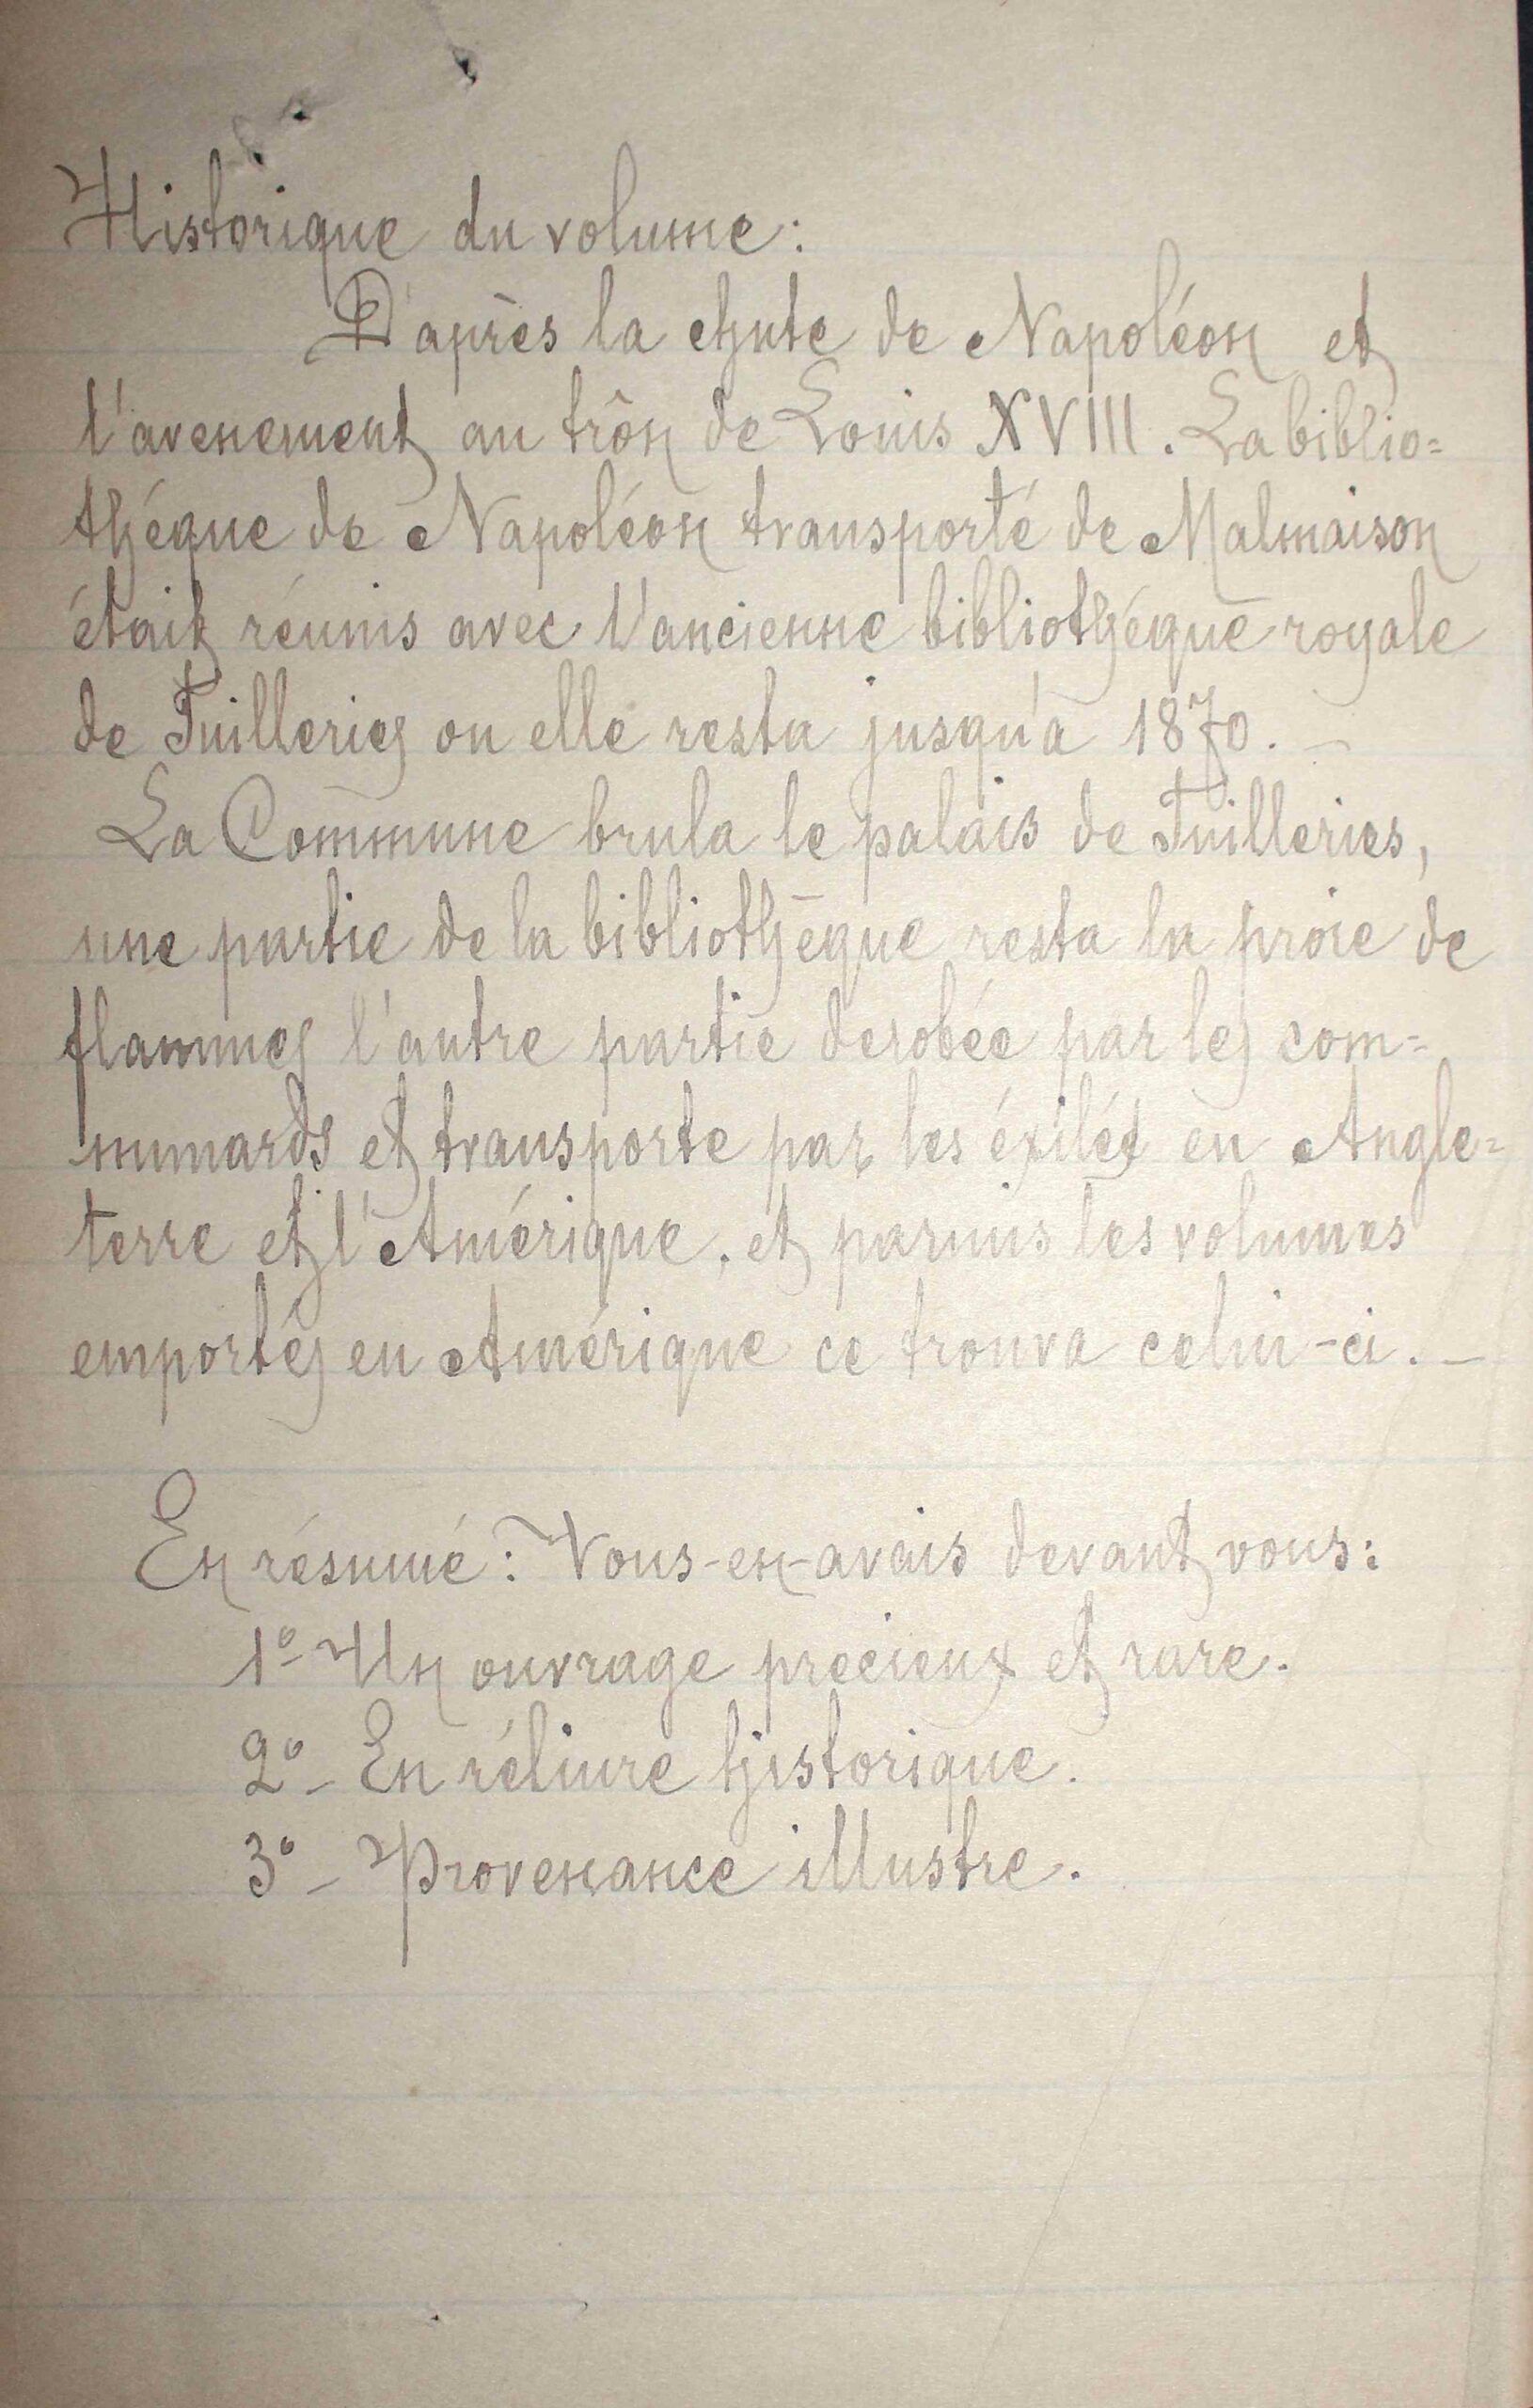 Historique du volume:
D'après la chute de Napoléon et
l'avenement au trôn de Louis XVIII. La biblio=
théque de Napoléon transporté de Malmaison
était réunis avec l'ancienne bibliothéque royale
de Tuilleries ou elle resta jusqu'à 1870. –
La Commune brula le palais de Tuilleries,
une partie de la bibliothèque resta la proie de
flammes l'autre partie derobée par les com=
munards et transporte par les éxilés en Angle=
terre et l'Amérique. et parmis les volumes
emportés en Amérique ce trouva celui-ci. –
En résumé: Vous-en-avais devant vous:
1º- Un ouvrage precieux et rare.
2º- En réliure historique.
3º- Provenance illustre.